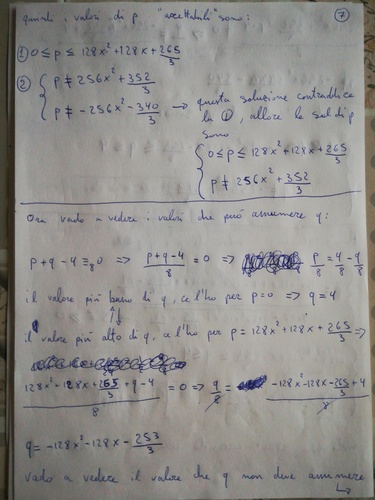 quindi i valori di p "accettabili" sono: 7
1) 0 ≤ p ≤ 128x² + 128x + 265/3
2) { p ≠ 256x² + 352/3
p ≠ -256x² - 340/3 → questa soluzione contraddice
la ①, allora le sol di p
sono
{ 0 ≤ p ≤ 128x² + 128x + 265/3
p ≠ 256x² + 352/3
Ora vado a vedere i valori che può assumere q:
p + q - 4 ≡₈ 0 ⇒ (p+q-4)/8 = 0 ⇒ p/8 = 4/8 - q/8
il valore più basso di q, ce l'ho per p=0 ⇒ q=4
il valore più alto di q, ce l'ho per p = 128x² + 128x + 265/3 ⇒
(128x² + 128x + 265/3 + q - 4)/8 = 0 ⇒ q/8 = (-128x² - 128x - 265/3 + 4)/8
q = -128x² - 128x - 253/3
vado a vedere il valore che q non deve assumere